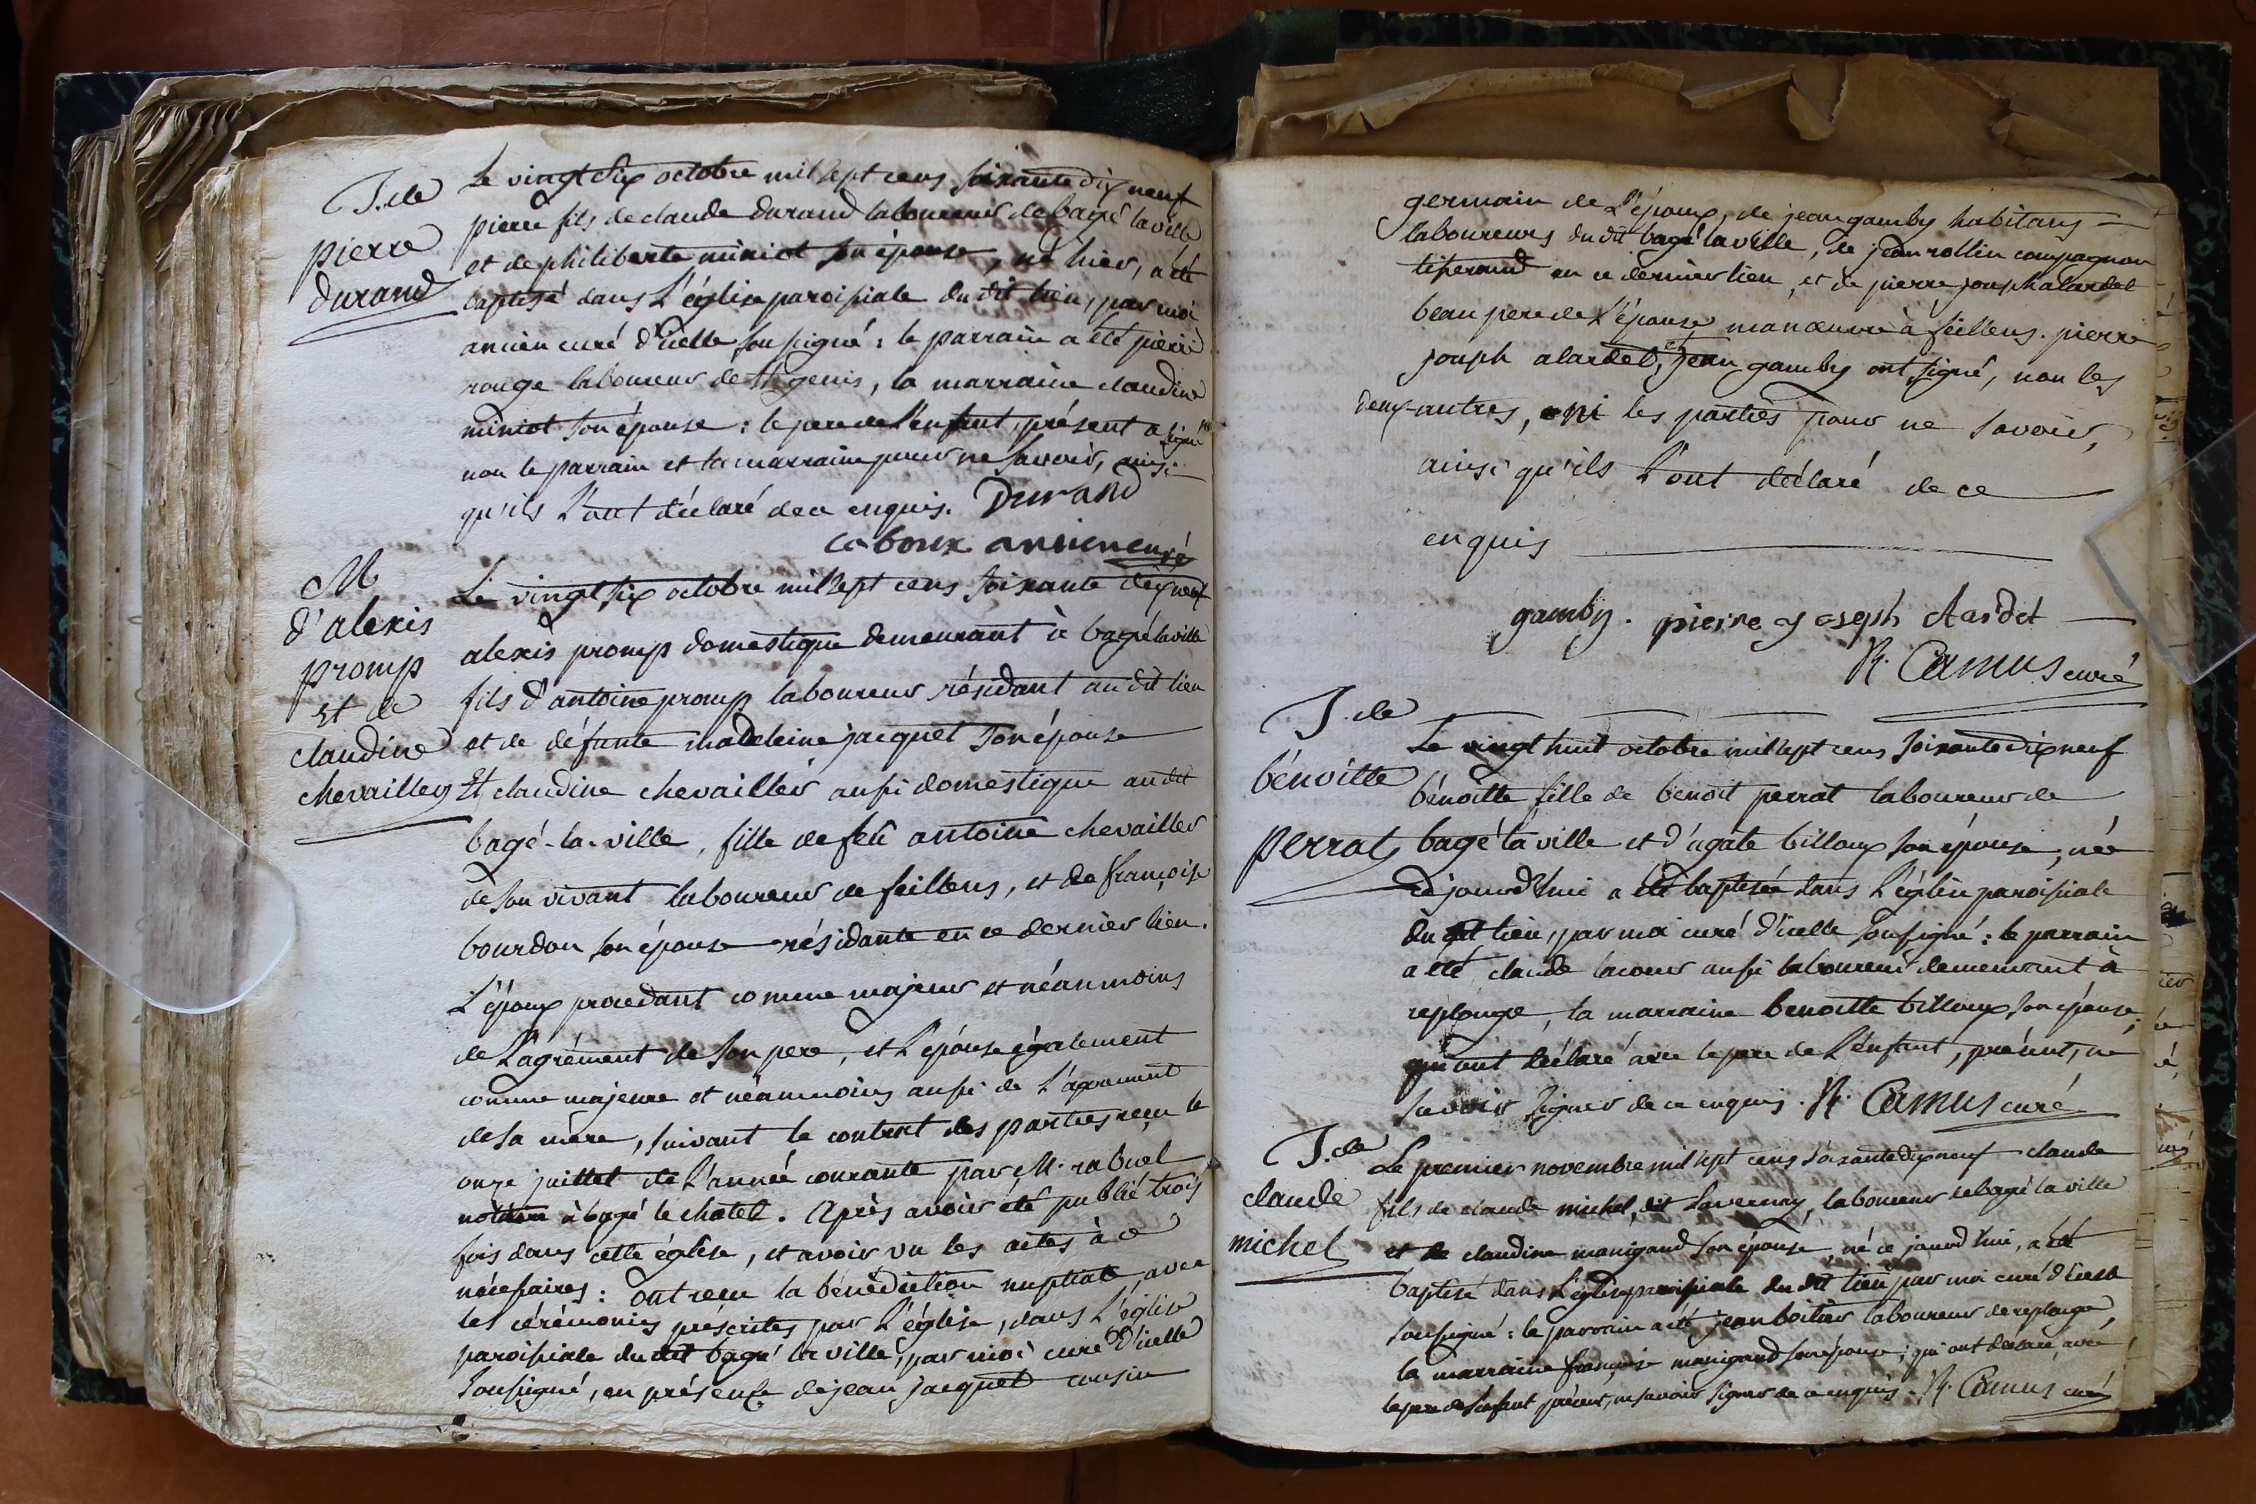 J. de
pierre
durand
Le vingt six octobre mil sept cens soixante dix neuf
pierre fils de claude durand laboureur de bagé la ville
et de philiberte miniot son épouse, né hier, a été
baptisé dans l'église paroissiale du dit lieu, par moi
ancien curé d'icelle soussigné : le parrain a été pierre
rouge laboureur de St genis, la marraine claudine
miniot son épouse : le pere de l'enfant, présent a signé
non le parrain et la marraine pour ne savoir, ainsi
qu'ils l'ont déclaré de ce enquis. Durand
caboux ancien curé
M
d'alexis
promp
et de
claudine
chevailler
Le vingt six octobre mil sept cens soixante dix neuf
alexis promp domestique demeurant à bagé la ville
fils d'antoine promp laboureur résidant au dit lieu
et de défunte madeleine jacquet son épouse
Et claudine chevailler aussi domestique au dit
bagé-la-ville, fille de feu antoine chevailler
de son vivant laboureur de feillens, et de françoise
bourdon son épouse résidante en ce dernier lieu.
L'époux procedant comme majeur et néanmoins
de l'agrément de son pere, et l'épouse également
comme majeure et néanmoins aussi de l'agrément
de sa mère, suivant le contrat des parties reçu le
onze juillet de l'année courante par M. rabuel
notaire à bagé le chatel. Après avoir été publié trois
fois dans cette église, et avoir vu les actes à ce
nécessaires : ont reçu la bénédiction nuptiale, avec
les cérémonies préscrites par l'église, dans l'église
paroissiale du dit bagé la ville, par moi curé d'icelle
soussigné, en présence de jean jacquet cousin
germain de l'époux, de jean gamby habitans
laboureurs du dit bagé la ville, de jean rollin compagnon
tisserand en ce dernier lieu, et de pierre joseph alardet
beau pere de l'épouse manoeuvre à feillens. pierre
joseph alardet, et jean gamby ont signé, non les
deux autres, ni les parties pour ne savoir,
ainsi qu'ils l'ont déclaré de ce
enquis
gamby. pierre joseph alardet
R. Camus curé
J. de
bénoitte
perrat
Le vingt huit octobre mil sept cens soixante dix neuf
bénoitte fille de benoit perrat laboureur de
bagé la ville et d'agate billoux son épouse, née
ce jourd'hui a été baptisée dans l'église paroissiale
du dit lieu, par moi curé d'icelle soussigné : le parrain
a été claude lacour aussi laboureur demeurant à
replonge, la marraine benoitte billoux son épouse,
qui ont déclaré avec le pere de l'enfant, présent, ne
savoir signer de ce enquis. R. Camus curé
J. de
claude
michel
Le premier novembre mil sept cens soixante dix neuf claude
fils de claude michel, dit Lavernay, laboureur de bagé la ville
et de claudine manigand son épouse né ce jourd'hui, a été
baptisé dans l'église paroissiale du dit lieu par moi curé d'icelle
soussigné : le parrain a été jean boitier laboureur de replonge,
la marraine françoise manigand son épouse, qui ont déclaré, avec
le pere de l'enfant présent, ne savoir signer de ce enquis. R. Camus curé